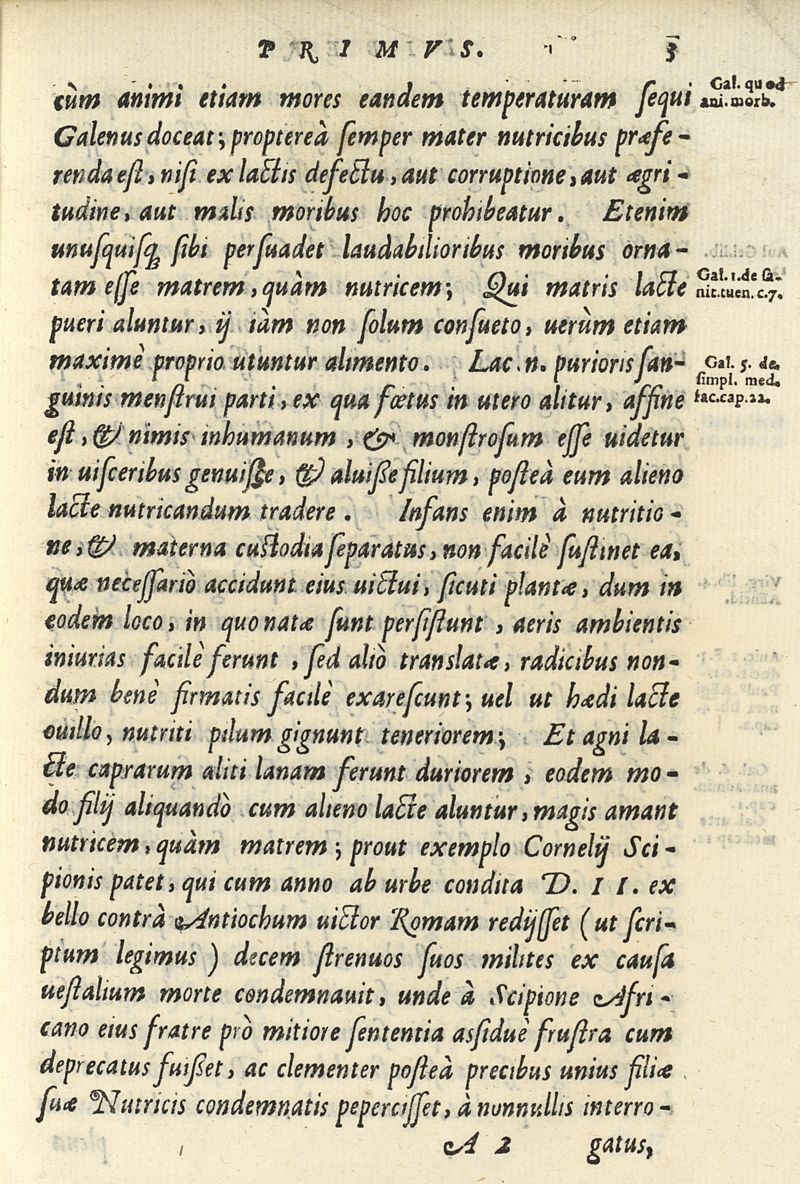 PRIMVS. 3
cùm animi etiam mores eandem temperaturam sequi
Gal. quod
ani. morb.
Galenus doceat; proptereà semper mater nutricibus præfe-
renda est, nisi ex lactis defectu, aut corruptione, aut ægri-
tudine, aut malis moribus hoc prohibeatur. Etenim
unusquisq; sibi persuadet laudabilioribus moribus orna-
tam esse matrem, quàm nutricem; Qui matris lacte
Gal. 1. de sa-
nit. tuen. c. 7.
pueri aluntur, ij iàm non solum consueto, uerùm etiam
maximè proprio utuntur alimento. Lac .n. purioris san-
Gal. 5. de
simpl. med.
fac. cap. 22.
guinis menstrui parti, ex qua fœtus in utero alitur, affine
est, & nimis inhumanum, & monstrosum esse uidetur
in uisceribus genuisse, & aluisse filium, posteà eum alieno
lacte nutricandum tradere. Infans enim à nutritio-
ne, & materna custodia separatus, non facilè sustinet ea,
quæ necessariò accidunt eius uictui, sicuti plantæ, dum in
eodem loco, in quo natæ sunt persistunt, aeris ambientis
iniurias facilè ferunt, sed aliò translatæ, radicibus non-
dum benè firmatis facilè exarescunt; uel ut hædi lacte
ouillo, nutriti pilum gignunt teneriorem; Et agni la-
cte caprarum aliti lanam ferunt duriorem, eodem mo-
do filij aliquandò cum alieno lacte aluntur, magis amant
nutricem, quàm matrem; prout exemplo Cornelij Sci-
pionis patet, qui cum anno ab urbe condita D. II. ex
bello contrà Antiochum uictor Romam redijsset (ut scri-
ptum legimus) decem strenuos suos milites ex causa
uestalium morte condemnauit, unde à Scipione Afri-
cano eius fratre prò mitiore sententia assiduè frustra cum
deprecatus fuisset, ac clementer posteà precibus unius filiæ
suæ Nutricis condemnatis pepercisset, à nonnullis interro-
A 2 gatus,